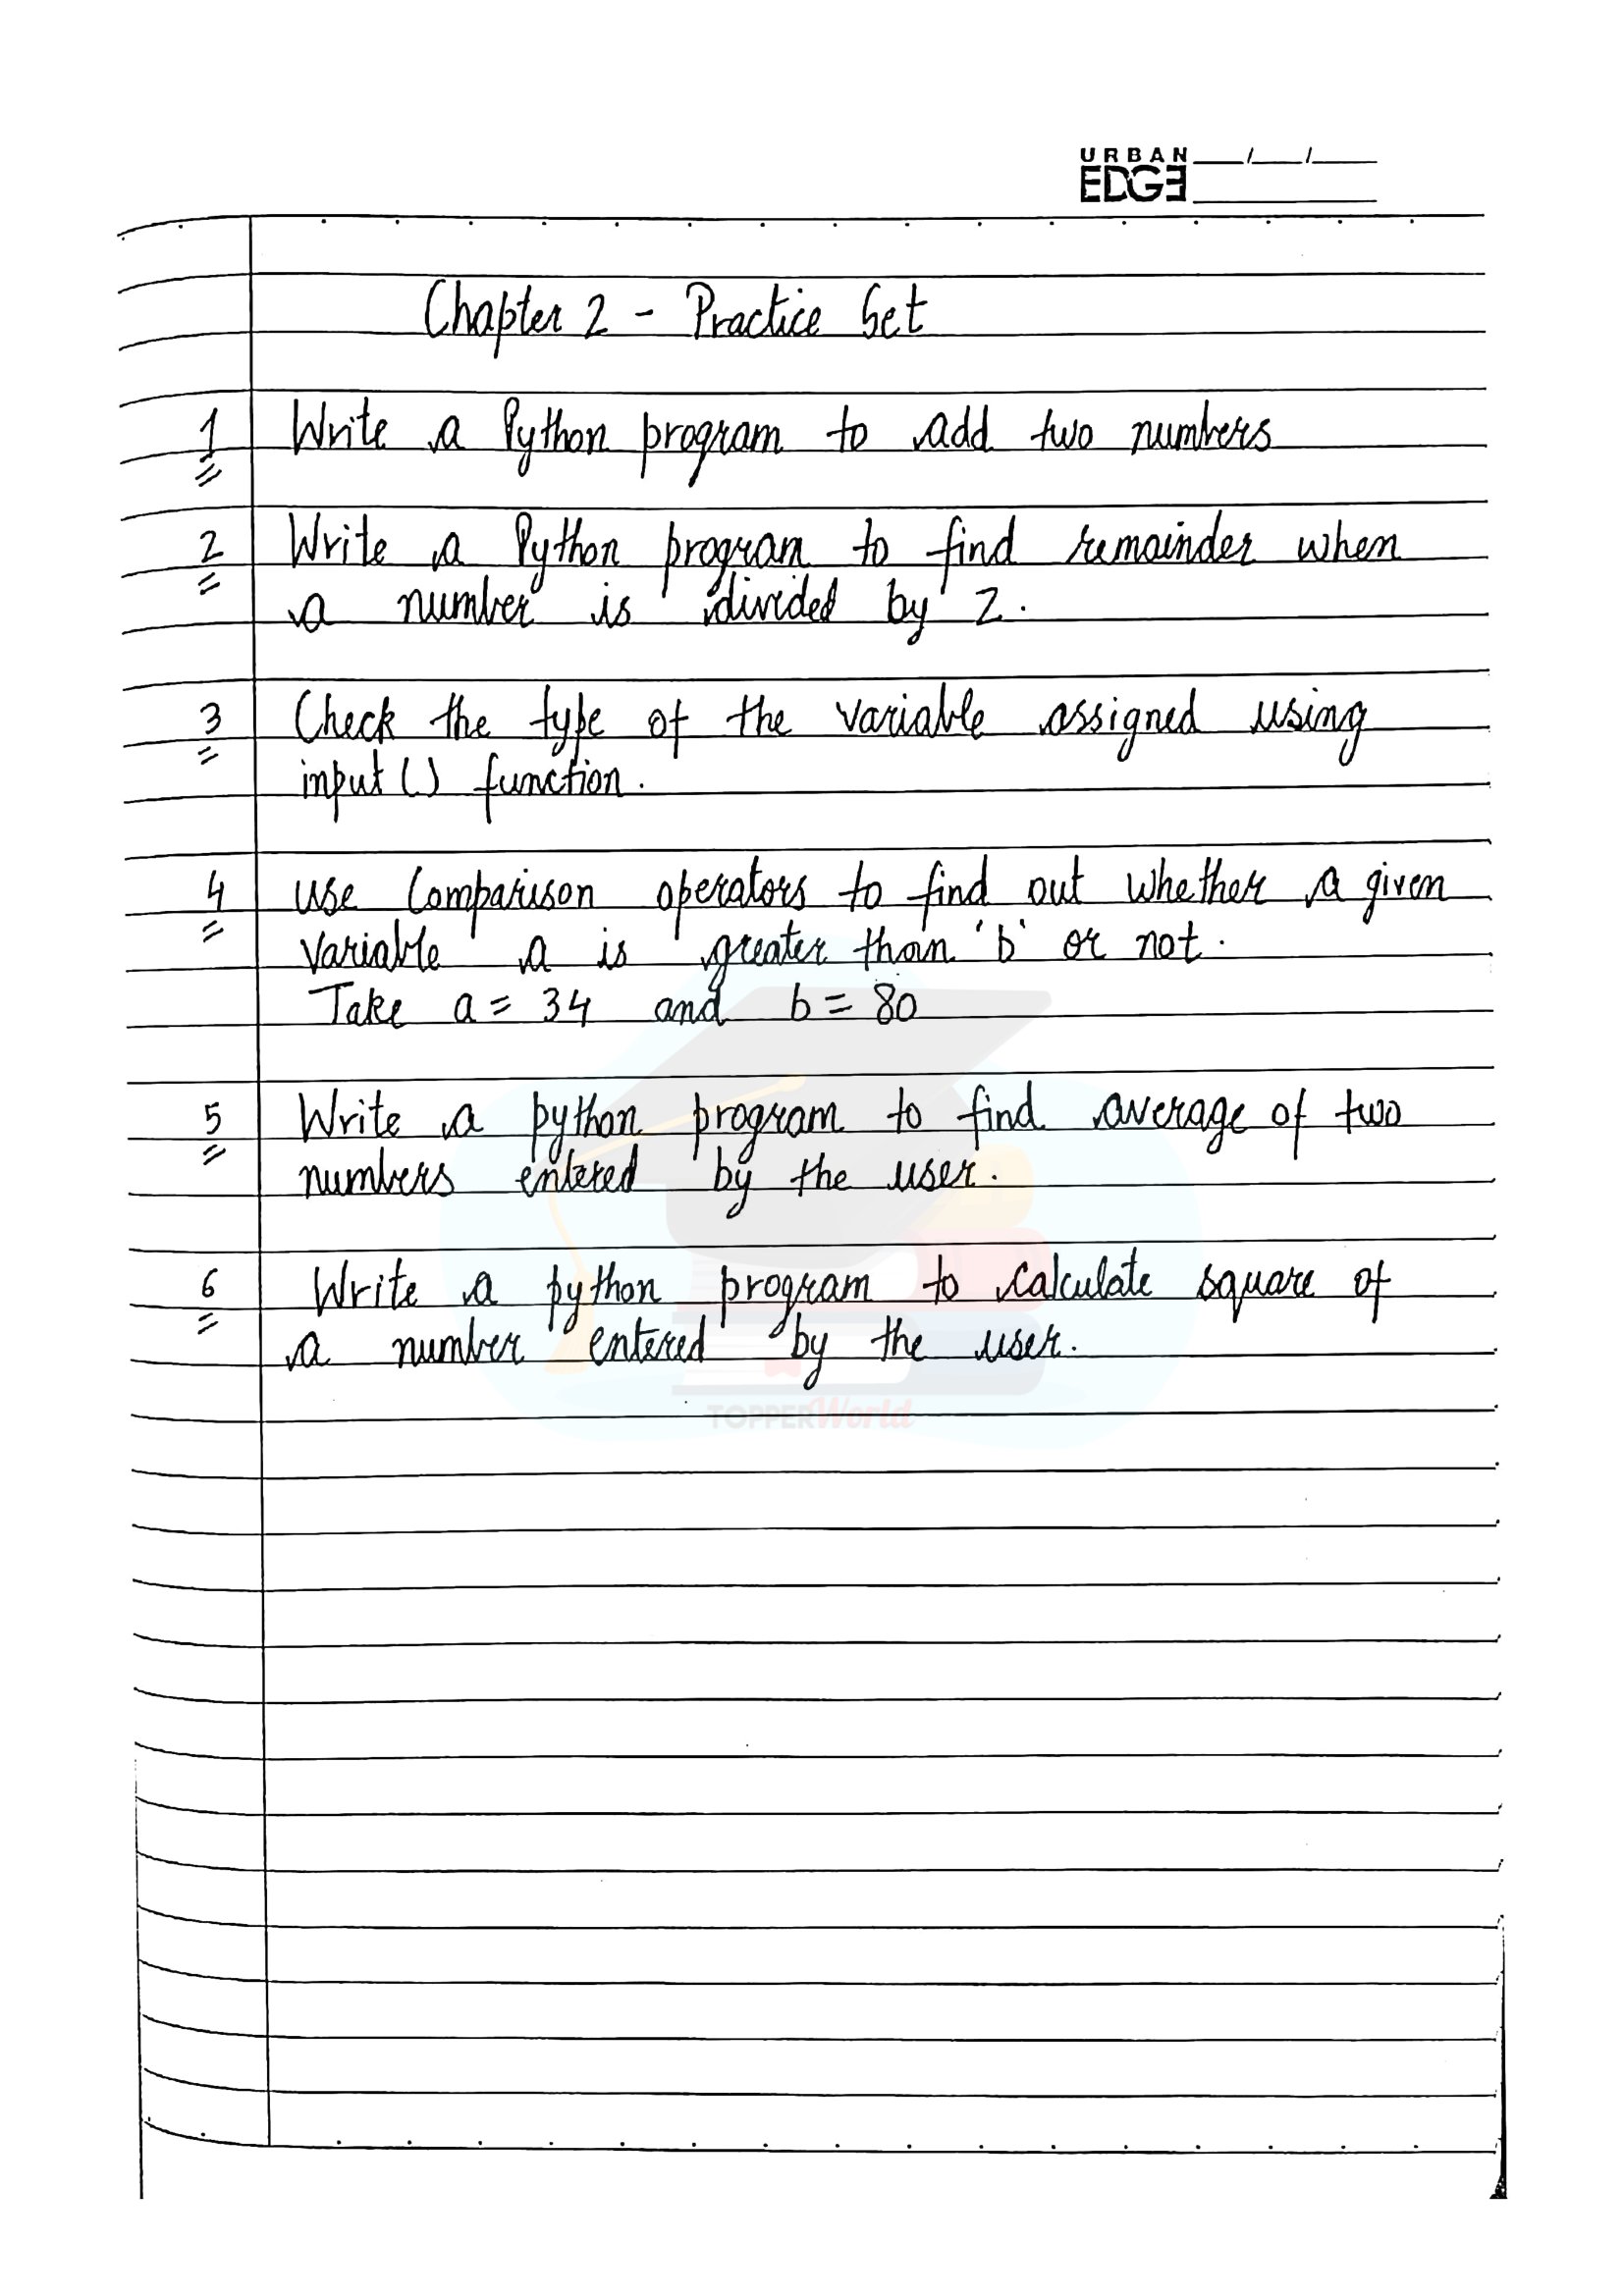 URBAN
EDGE
Chapter 2 - Practice Set
1 Write a Python program to add two numbers
2 Write a Python program to find remainder when
a number is divided by 2.
3 Check the type of the variable assigned using
input () function.
4 use Comparison operators to find out whether a given
variable a is greater than 'b' or not.
Take a = 34 and b = 80
5 Write a python program to find average of two
numbers entered by the user.
6 Write a python program to calculate square of
a number entered by the user.
TOPPERWorld